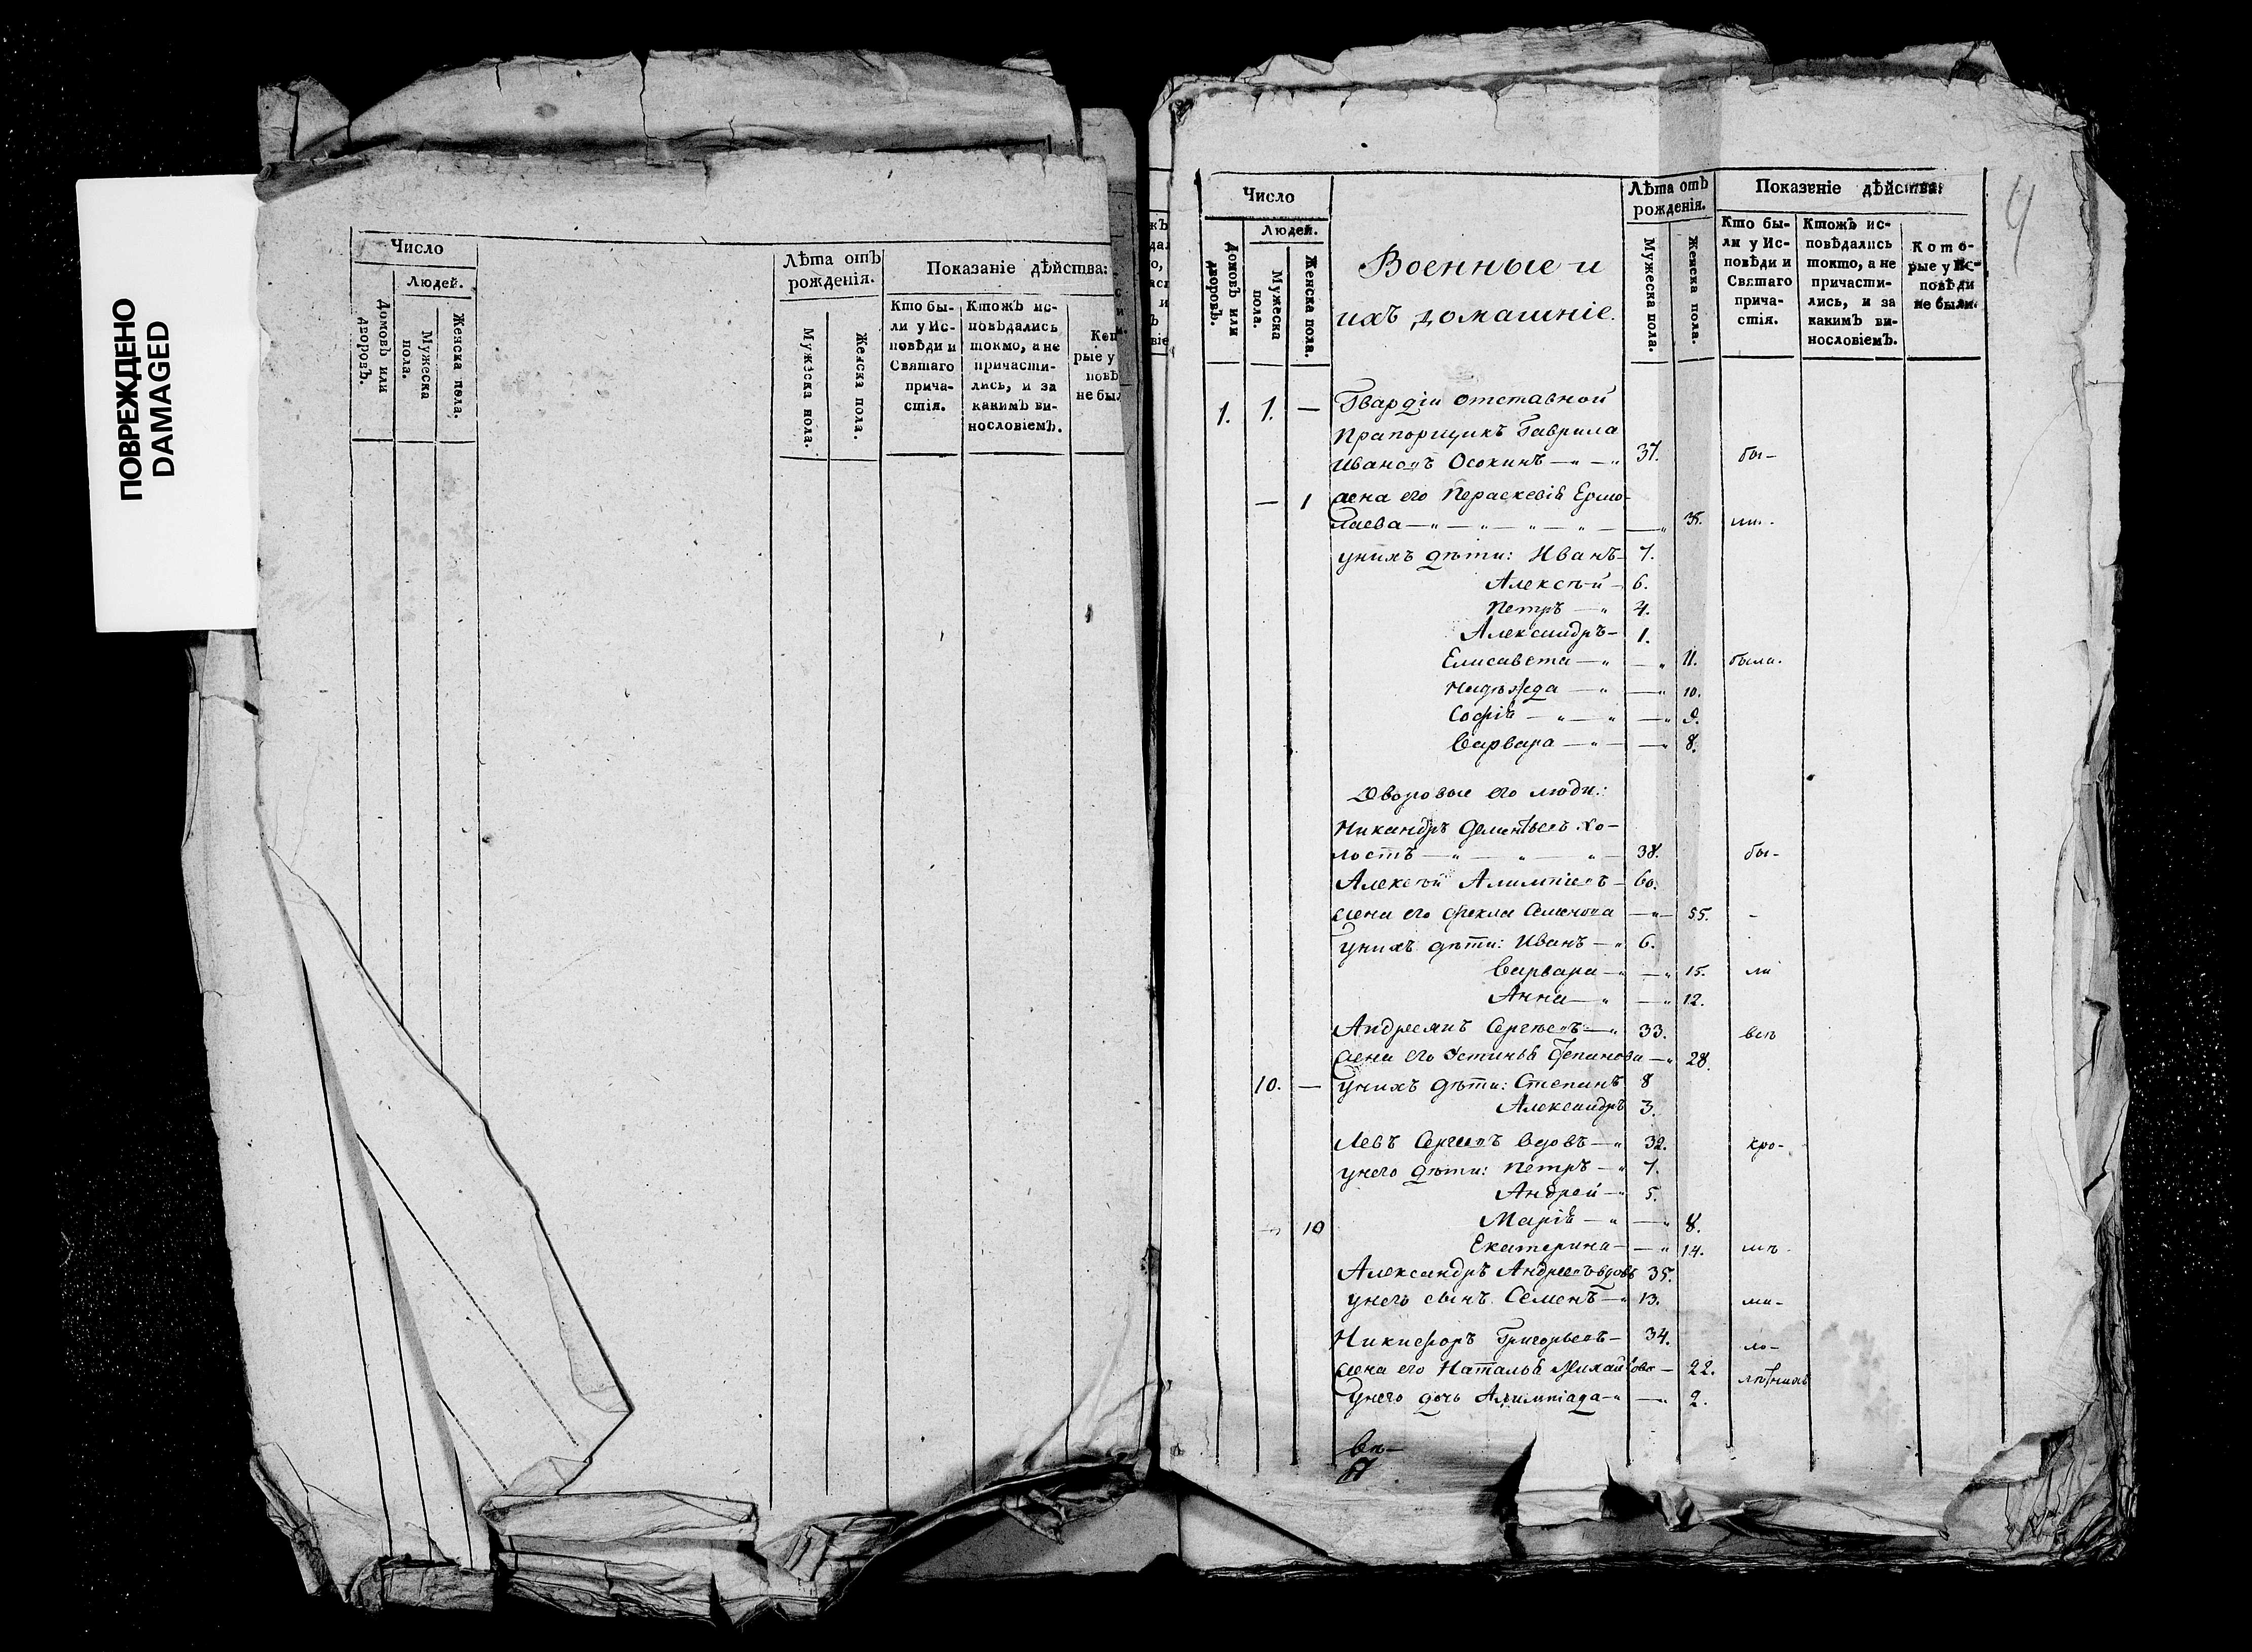 ПОВРЕЖДЕНО
DAMAGED
Число
Людей.
Домовъ или дворовъ.
Мужеска пола.
Женска пола.
Лѣта отъ
рожденія.
Мужеска пола.
Женска пола.
Показаніе дѣйства:
Кто бы-
ли у Ис-
повѣди и
Святаго
прича-
стія.
Ктожъ ис-
повѣдались
токмо, а не
причасти-
лись, и за
какимъ ви-
нословіемъ.
рые у
повѣ
не был
4
Число
Людей.
Домовъ или дворовъ.
Мужеска пола.
Женска пола.
Военные и
ихъ домашніе.
Лѣта отъ
рожденія.
Мужеска пола.
Женска пола.
Показаніе дѣйства:
Кто бы-
ли у Ис-
повѣди и
Святаго
прича-
стія.
Ктожъ ис-
повѣдались
токмо, а не
причасти-
лись, и за
какимъ ви-
нословіемъ.
Кото-
рые у Ис-
повѣди
не были.
1. 1. — Гвардіи отставной
Прапорщикъ Гаврила
Ивановъ Осокинъ — 37. бы-
— 1 жена его Параскевія Ермо-
лаева — 35. ли.
у нихъ дѣти: Иванъ 7.
Алексѣй 6.
Петръ 4.
Александръ 1.
Елисавета — 11. была.
Надѣжда — 10.
Софія — 9.
Варвара — 8.
Дворовые его люди:
Никандръ Дементьевъ хо-
лостъ — 38. бы-
Алексѣй Алимпіевъ 60.
жена его Фекла Семенова — 55. -
у нихъ дѣти: Иванъ 6.
Варвара — 15. ли
Анна — 12.
Андреянъ Сергѣевъ — 33. всѣ
жена его Устинья Степанова — 28.
10. — у нихъ дѣти: Степанъ 8
Александръ 3.
Левъ Сергеевъ вдовъ 32. кро-
у него дѣти: Петръ 7.
Андрей 5.
10 Марія — 8.
Екатерина — 14. мѣ
Александръ Андреевъ вдовъ 35.
у него сынъ Семенъ 13. ма-
Никифоръ Григорьевъ 34. ло-
жена его Наталья Михайлова — 22. лѣтнихъ
у него дочь Алимпіада — 2.